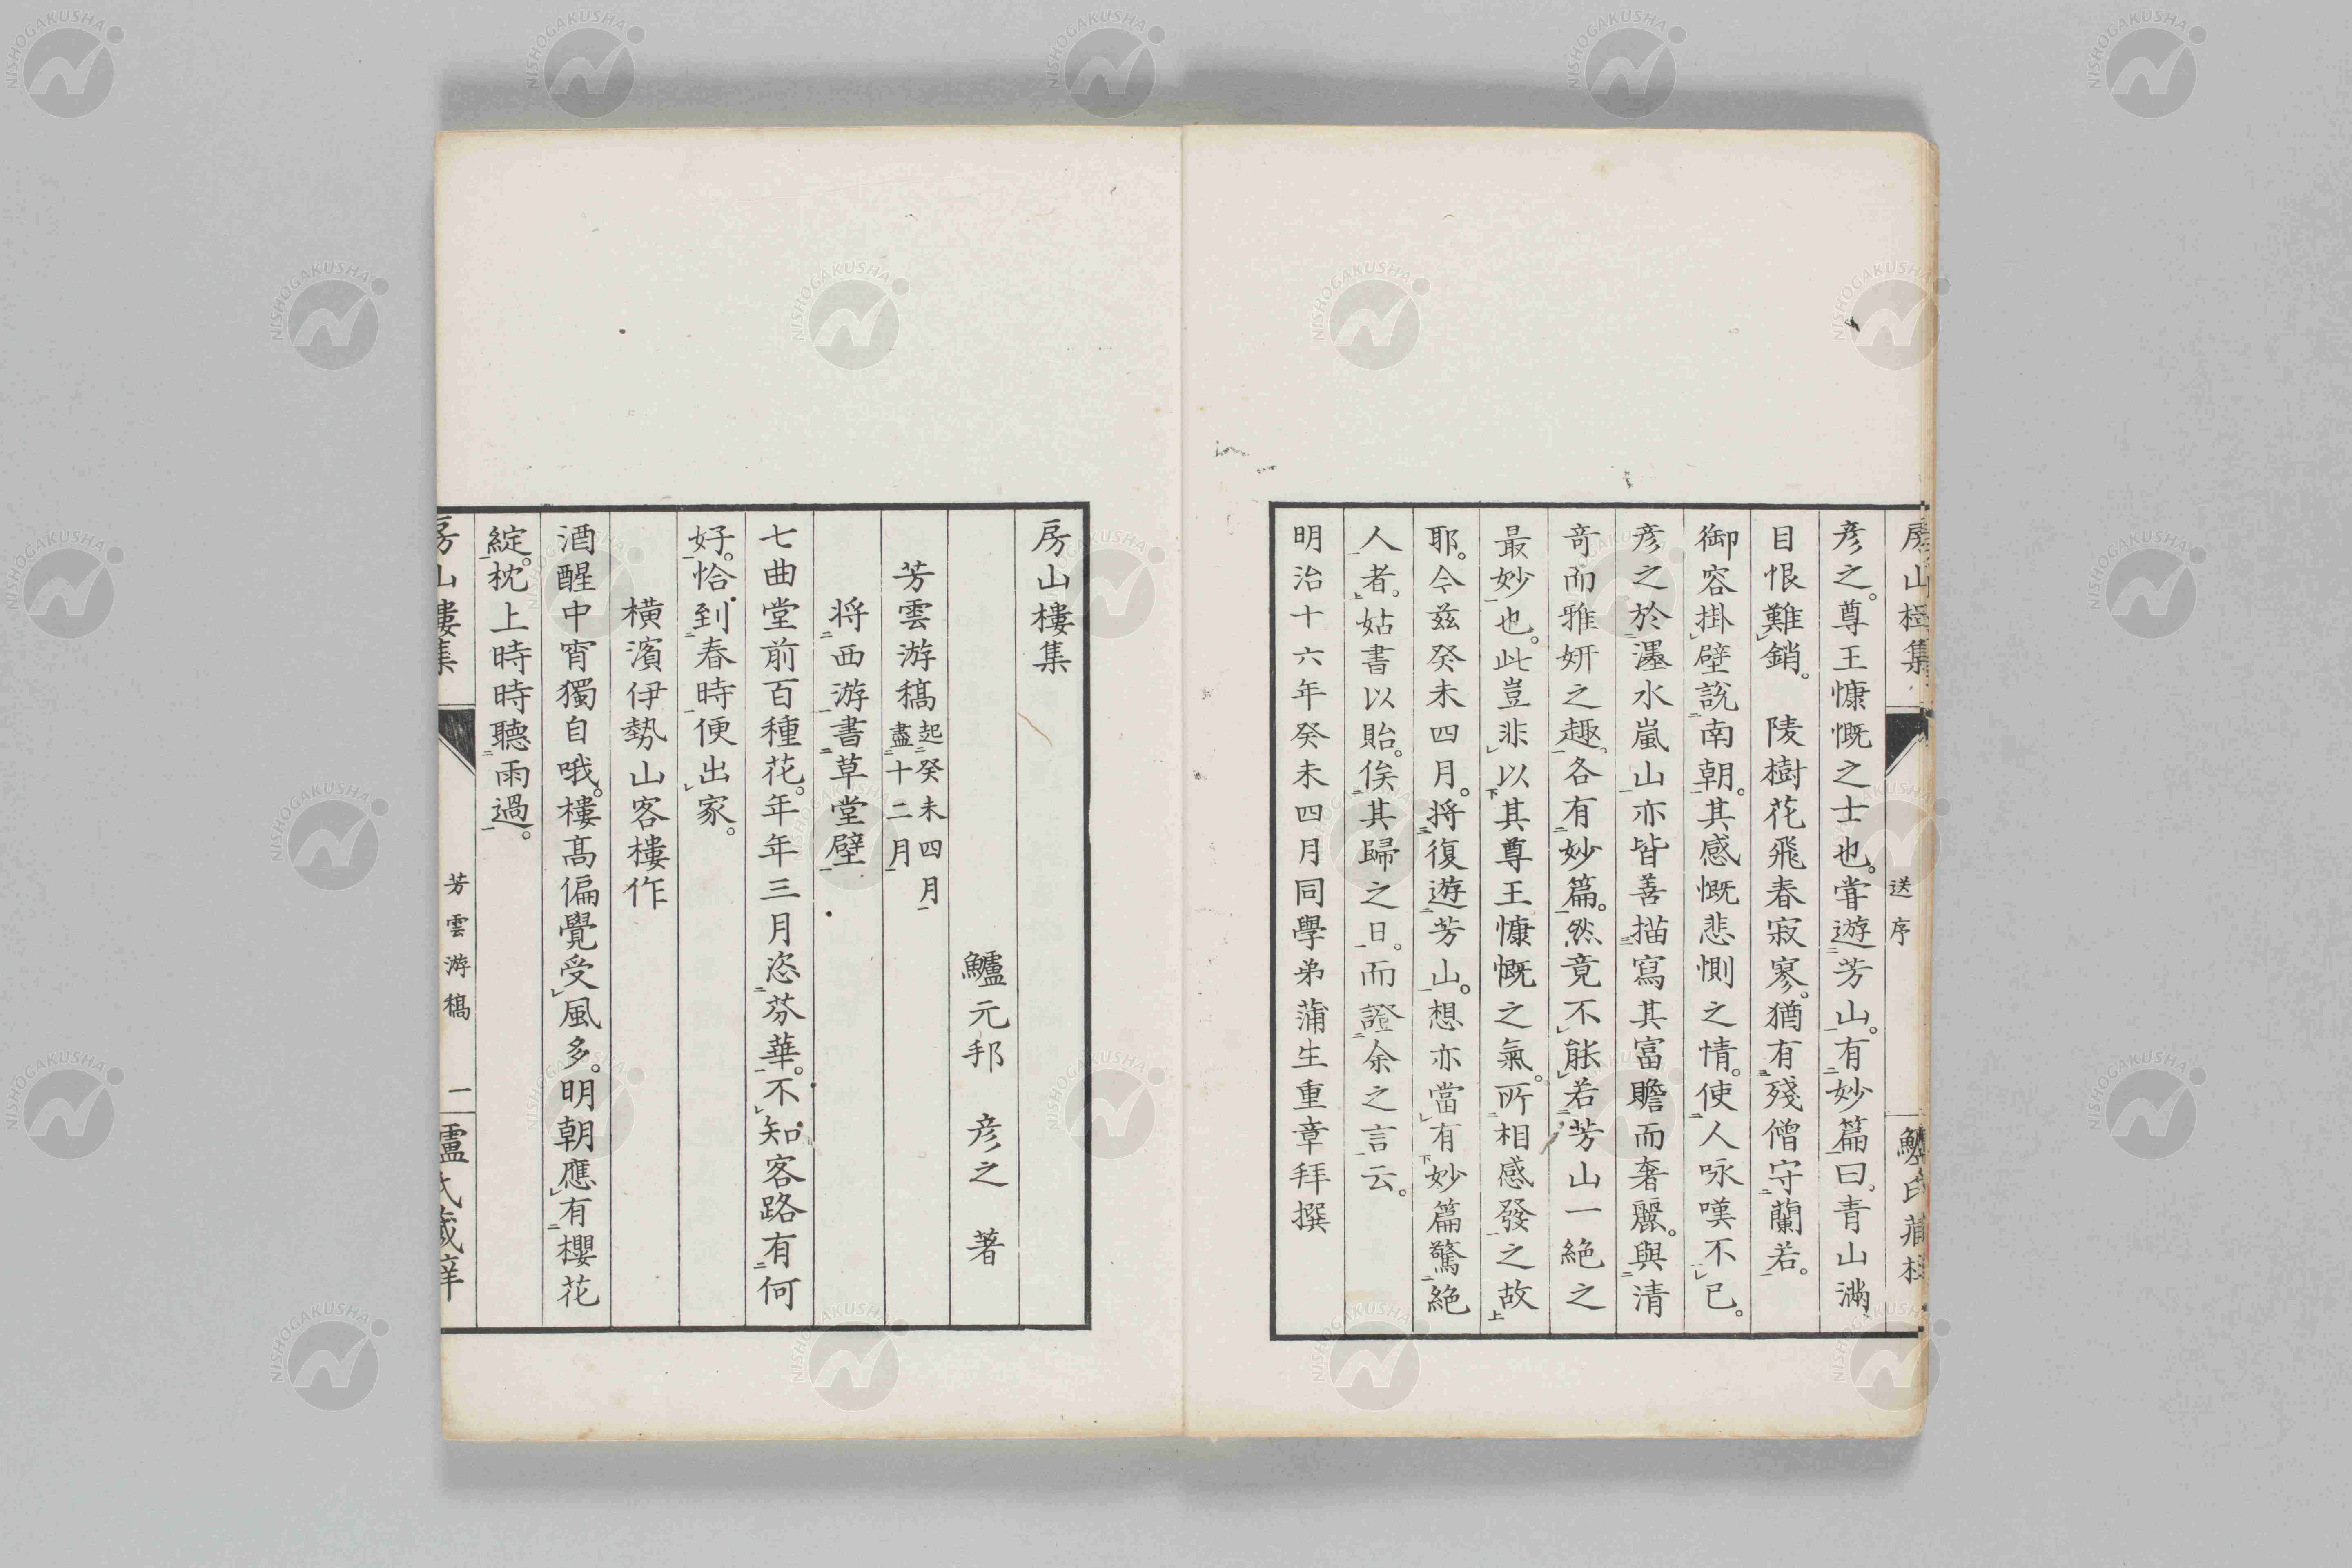 彦之。尊王慷慨之士也。甞遊芳山。有妙篇曰。青山滿
目恨難銷。陵樹花飛春寂寥。猶有殘僧守蘭若。
御容掛壁説南朝。其感慨悲惻之情。使人咏嘆不已。
彦之於濹水嵐山亦皆善描寫其富贍而奢麗。與清
竒而雅妍之趣。各有妙篇。然竟不能若芳山一絶之
最妙也。此豈非以其尊王慷慨之氣。所相感發之故
耶。今茲癸未四月。将復遊芳山。想亦當有妙篇驚絶
人者。姑書以貽。俟其歸之日。而證余之言云。
明治十六年癸未四月同學弟蒲生重章拜撰
送序
房山樓集
鱸元邦 彦之 著
芳雲游稿起癸未四月
盡十二月
将西游書草堂壁
七曲堂前百種花。年年三月恣芬華。不知客路有何
好。恰到春時便出家。
橫濱伊勢山客樓作
酒醒中宵獨自哦。樓髙偏覺受風多。明朝應有櫻花
綻。枕上時時聽雨過。
房山樓集
芳雲游稿
一
NISHOGAKUSHA